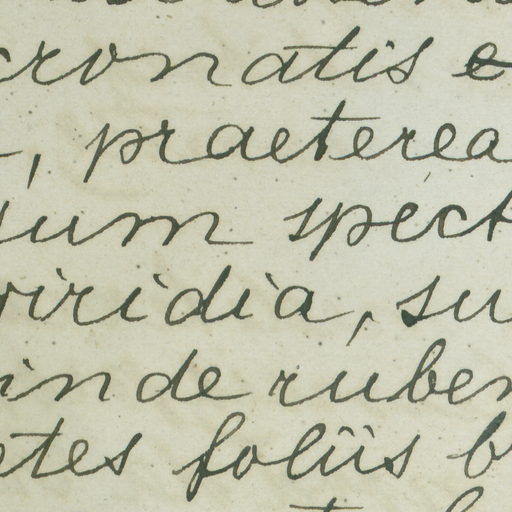 cronatis e
, praeterea
ium spect
viridia, su
inde ruben
etes foliis b